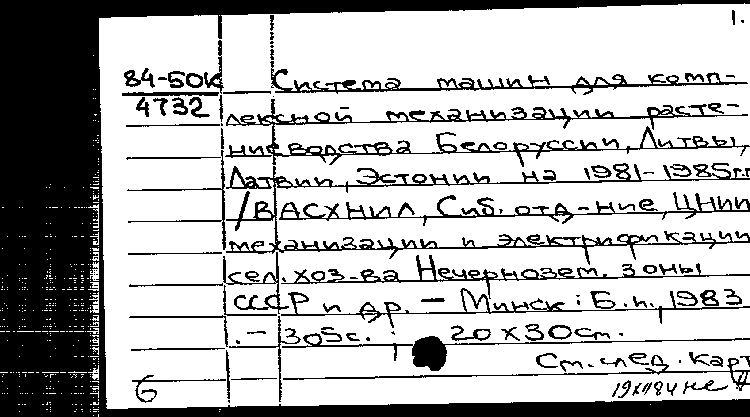 1.
84-50к Система машин для комп-
4732 лексной механизации расте-
ниеводства Белоруссии, Литвы,
Латвии, Эстонии на 1981-1985гг.
/ВАСХНИЛ, Сиб. отд-ние, ЦНИИ
механизации и электрификации
сел. хоз-ва Нечернозем. зоны
СССР и др. – Минск: Б.и., 1983
.– 305с. ; 20х30см.
См. след. карт
б